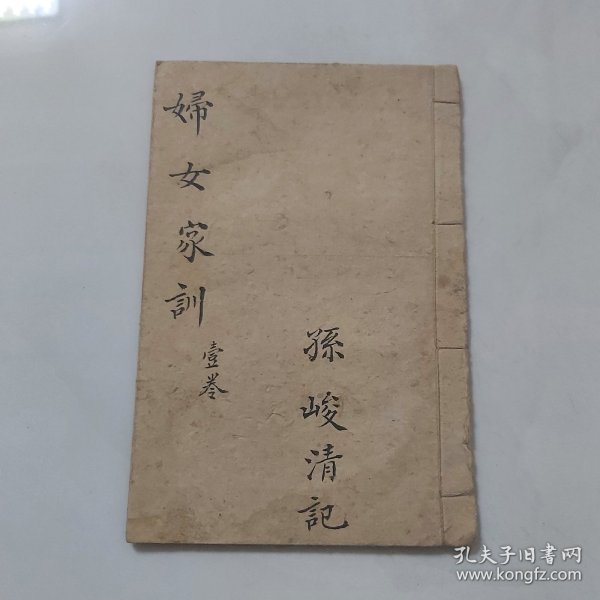 婦女家訓
壹卷
孫峻清記
孔夫子旧書网
www.kongfz.com